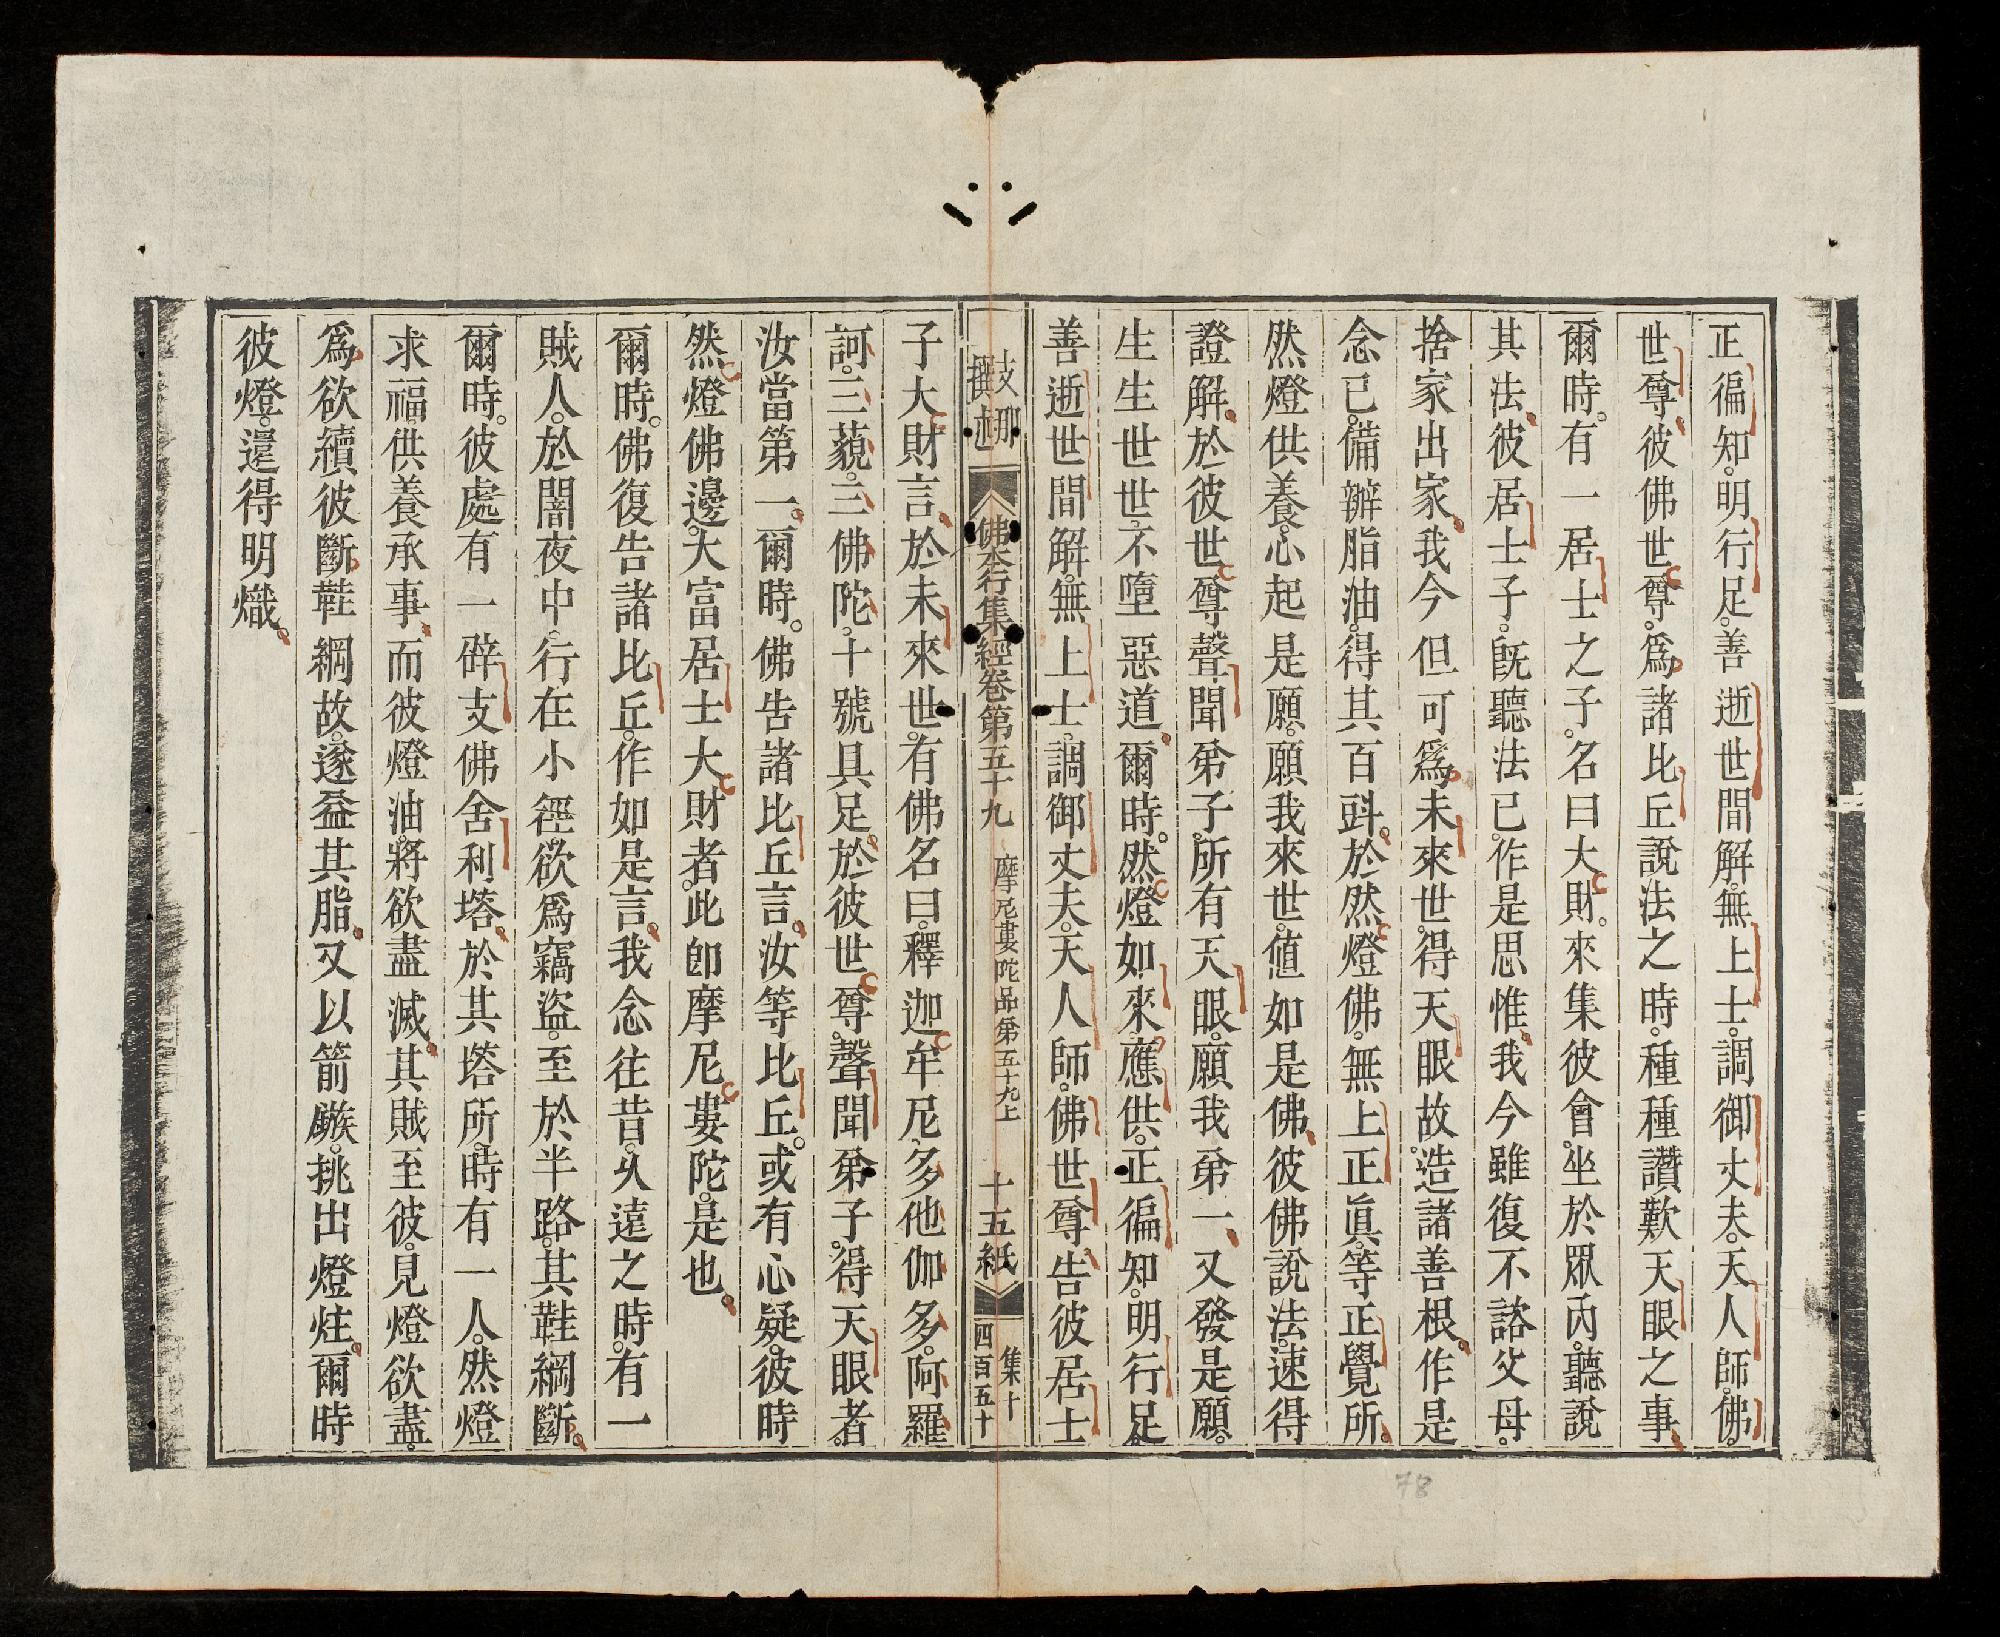 正徧知。明行足。善逝世間解。無上士。調御丈夫。天人師。佛。
世尊。彼佛世尊。爲諸比丘說法之時。種種讚歎天眼之事。
爾時。有一居士之子。名曰大財。來集彼會。坐於眾內。聽說
其法。彼居士子。旣聽法已。作是思惟。我今雖復不諮父母。
捨家出家。我今但可爲未來世。得天眼故。造諸善根。作是
念已。備辦脂油。得其百㪷。於然燈佛。無上正眞。等正覺所。
然燈供養。心起是願。願我來世。值如是佛。彼佛說法。速得
證解。於彼世尊聲聞弟子。所有天眼。願我第一。又發是願。
生生世世。不墮惡道。爾時。然燈如來。應供。正徧知。明行足。
善逝世間解。無上士。調御丈夫。天人師。佛世尊。告彼居士
佛本行集經卷第五十九 摩尼婁陀品第五十九上 十五紙 集十 四百五十
子大財言。於未來世。有佛名曰。釋迦牟尼。多他伽多。阿羅
訶。三藐。三佛陀。十號具足。於彼世尊。聲聞弟子。得天眼者。
汝當第一。爾時。佛告諸比丘言。汝等比丘。或有心疑。彼時
然燈佛邊。大富居士大財者。此卽摩尼婁陀。是也。
爾時。佛復告諸比丘。作如是言。我念往昔。久遠之時。有一
賊人。於闇夜中。行在小徑。欲爲竊盜。至於半路。其鞋綱斷。
爾時。彼處有一辟支佛舍利塔。於其塔所。時有一人。然燈
求福。供養承事。而彼燈油。將欲盡滅。其賊至彼。見燈欲盡。
爲欲續彼斷鞋綱故。遂益其脂。又以箭鏃。挑出燈炷。爾時
彼燈。還得明熾。